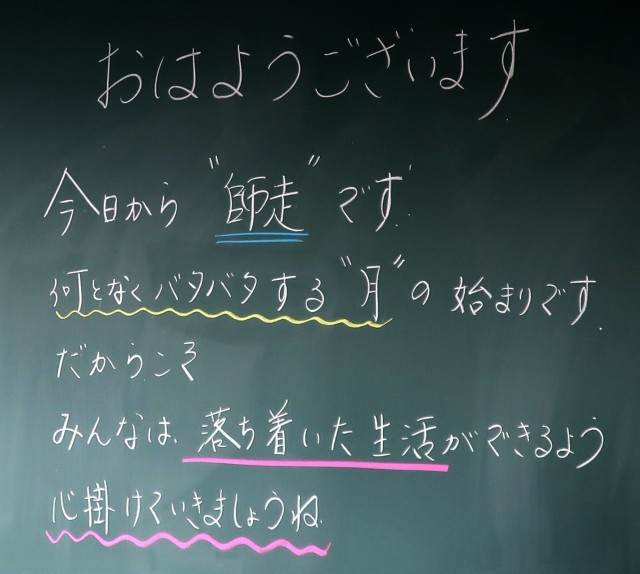 おはようございます
今日から "師走" です.
何となくバタバタする "月" の始まりです.
だからこそ
みんなは、落ち着いた生活ができるよう
心掛けていきましょうね.